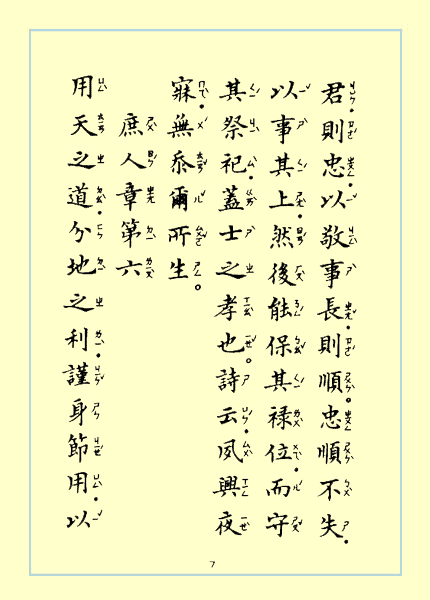 君・則忠・以敬事長・則順。忠順不失・
以事其上・然後能保其禄位・而守
其祭祀・蓋士之孝也。詩云・夙興夜
寐・無忝爾所生。
庶人章第六
用天之道・分地之利・謹身節用・以
7